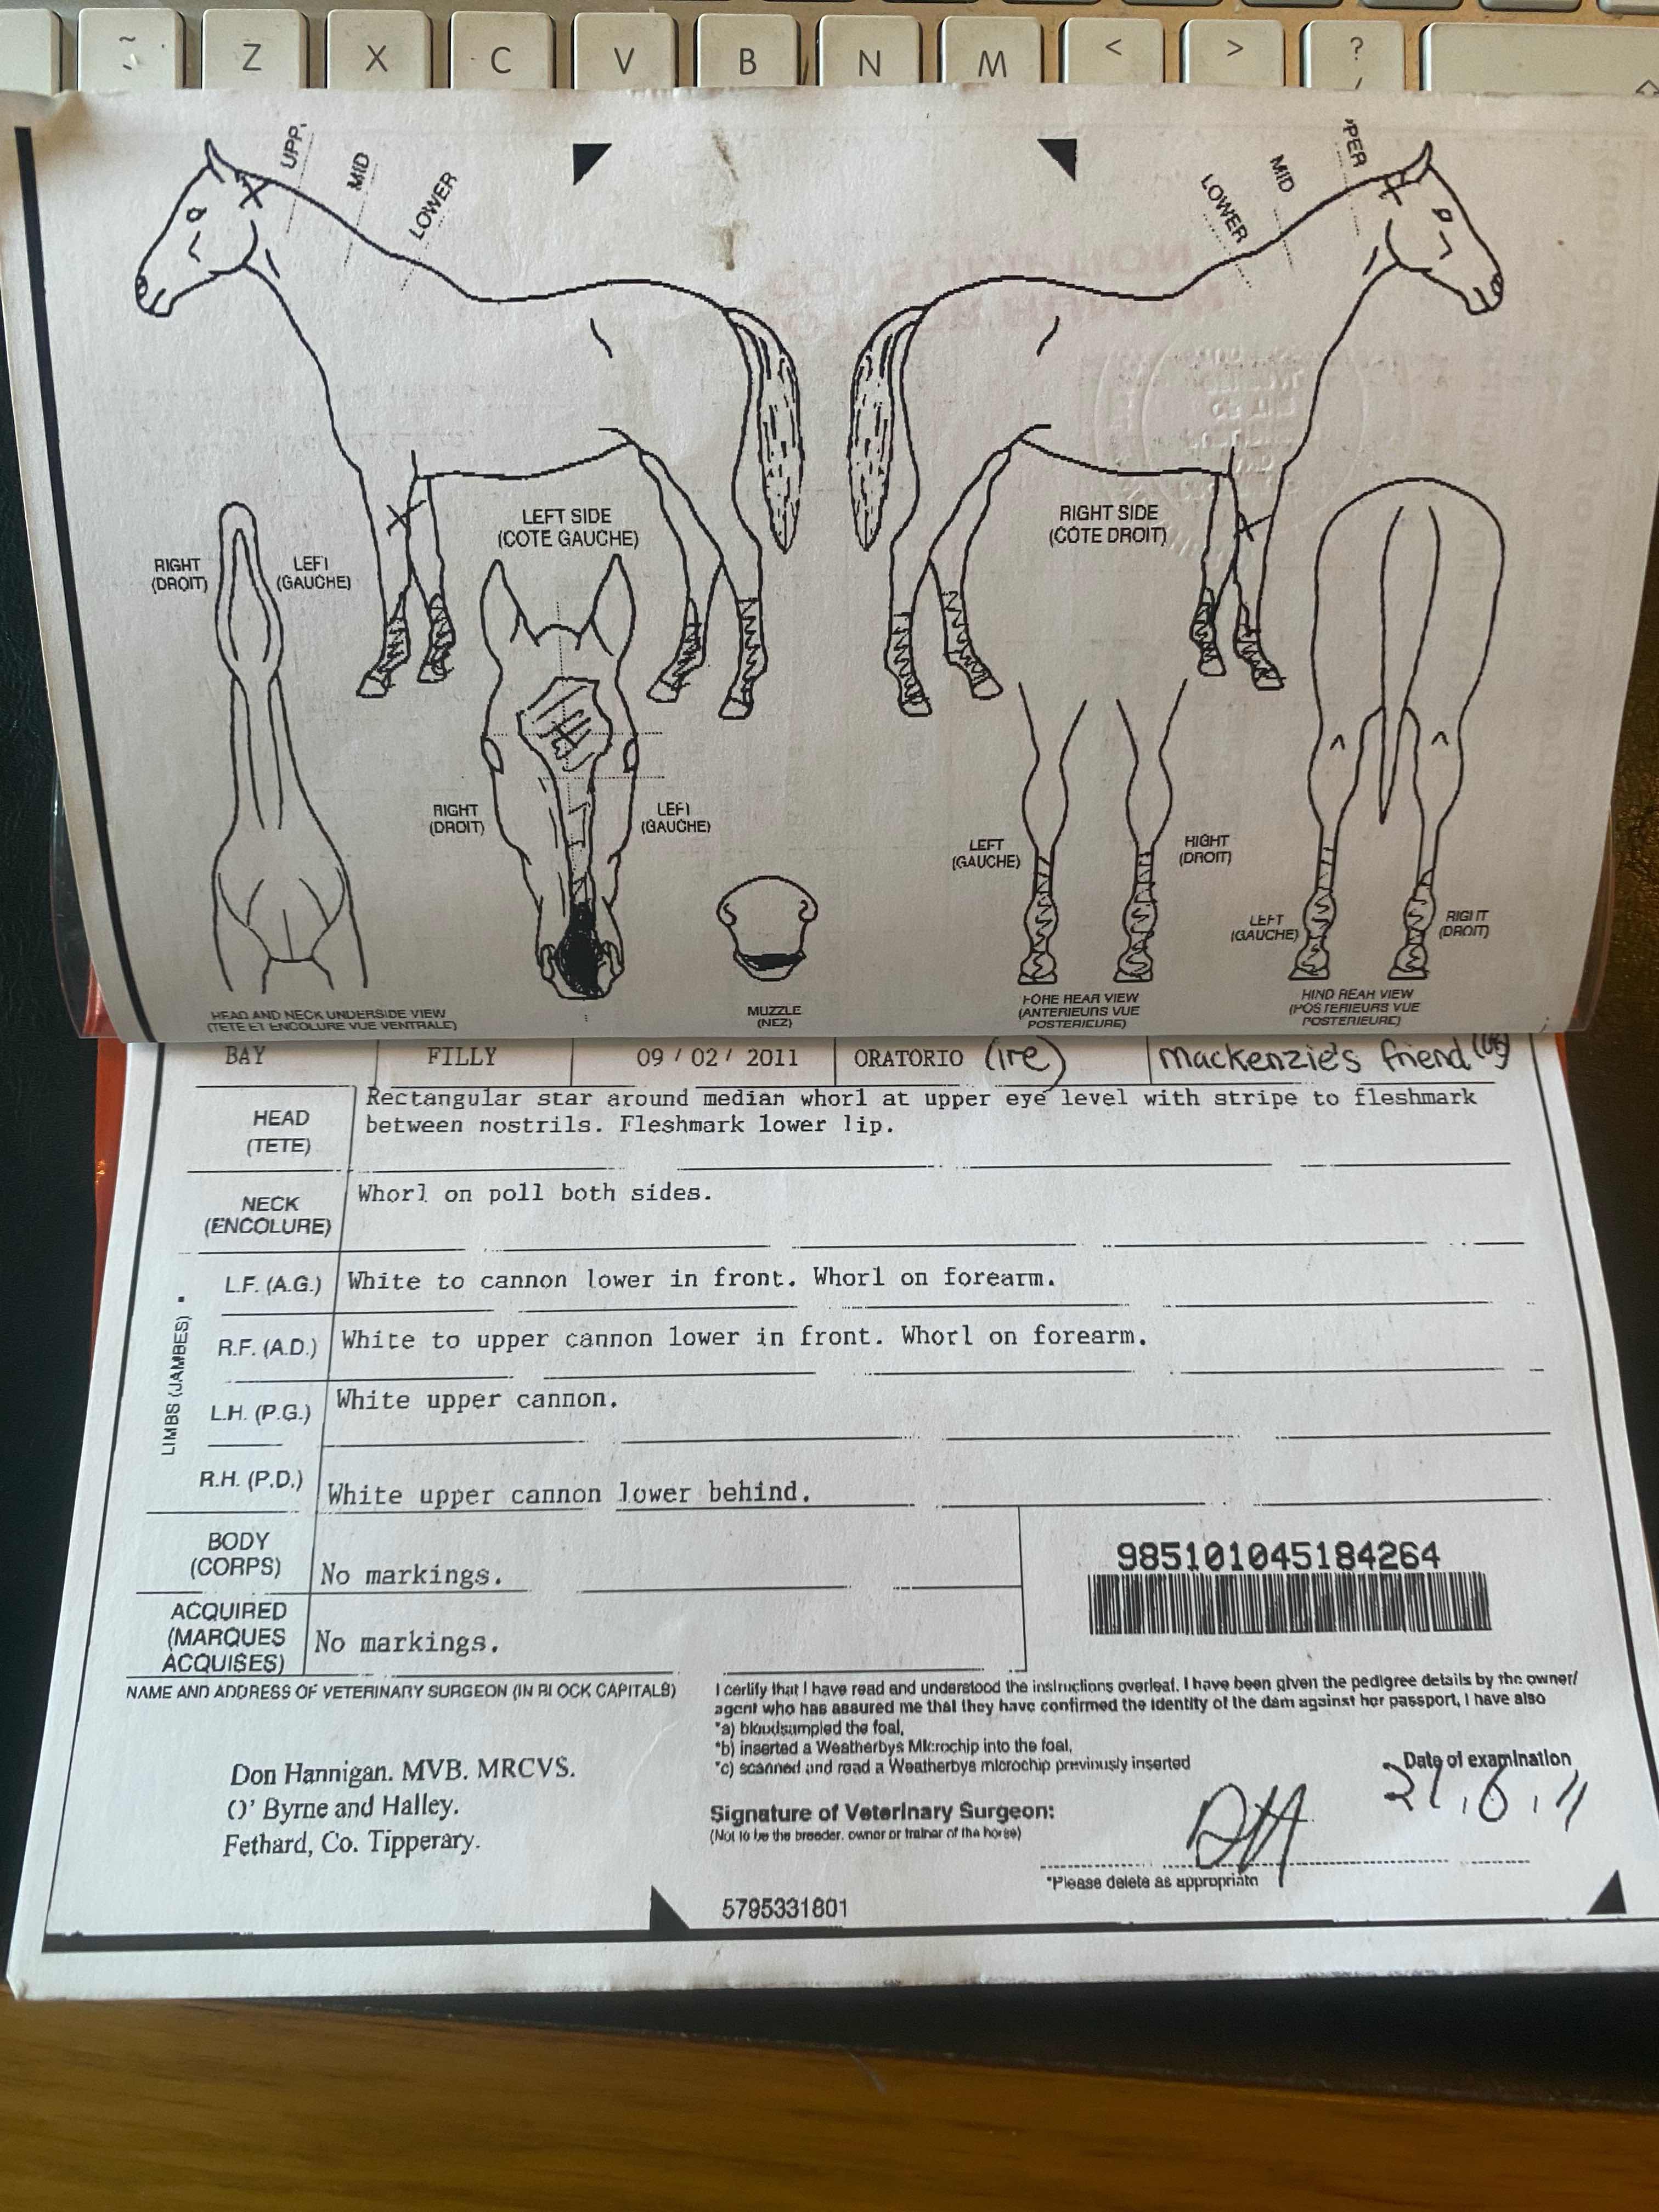 ~
Z X C V B N M < > ?
/
UPP.
MID
LOWER
LOWER
MID
PPER
LEFT SIDE
(COTE GAUCHE)
RIGHT SIDE
(COTE DROIT)
RIGHT
(DROIT)
LEFT
(GAUCHE)
RIGHT
(DROIT)
LEFT
(GAUCHE)
LEFT
(GAUCHE)
RIGHT
(DROIT)
LEFT
(GAUCHE)
RIGHT
(DROIT)
HEAD AND NECK UNDERSIDE VIEW
(TETE ET ENCOLURE VUE VENTRALE)
MUZZLE
(NEZ)
FORE REAR VIEW
(ANTERIEURS VUE
POSTERIEURE)
HIND REAR VIEW
(POSTERIEURS VUE
POSTERIEURE)
BAY FILLY 09 / 02 / 2011 ORATORIO (ire) Mackenzie's friend
HEAD
(TETE)
Rectangular star around median whorl at upper eye level with stripe to fleshmark
between nostrils. Fleshmark lower lip.
NECK
(ENCOLURE)
Whorl on poll both sides.
LIMBS (JAMBES)
L.F. (A.G.) White to cannon lower in front. Whorl on forearm.
R.F. (A.D.) White to upper cannon lower in front. Whorl on forearm.
L.H. (P.G.) White upper cannon.
R.H. (P.D.) White upper cannon lower behind.
BODY
(CORPS)
No markings.
985101045184264
ACQUIRED
(MARQUES
ACQUISES)
No markings.
NAME AND ADDRESS OF VETERINARY SURGEON (IN BLOCK CAPITALS)
Don Hannigan. MVB. MRCVS.
O' Byrne and Halley.
Fethard, Co. Tipperary.
I certify that I have read and understood the instructions overleaf. I have been given the pedigree details by the owner/
agent who has assured me that they have confirmed the identity of the dam against her passport, I have also
*a) bloodsampled the foal,
*b) inserted a Weatherbys Microchip into the foal,
*c) scanned and read a Weatherbys microchip previously inserted
Date of examination
21.6.11
Signature of Veterinary Surgeon:
(Not to be the breeder, owner or trainer of the horse)
*Please delete as appropriate
5795331801